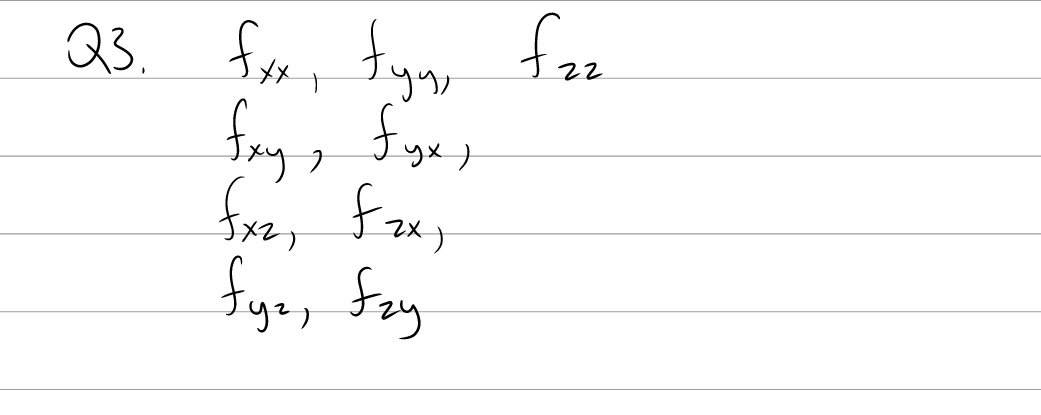 Q3. fxx, fyy, fzz
fxy, fyx,
fxz, fzx,
fyz, fzy